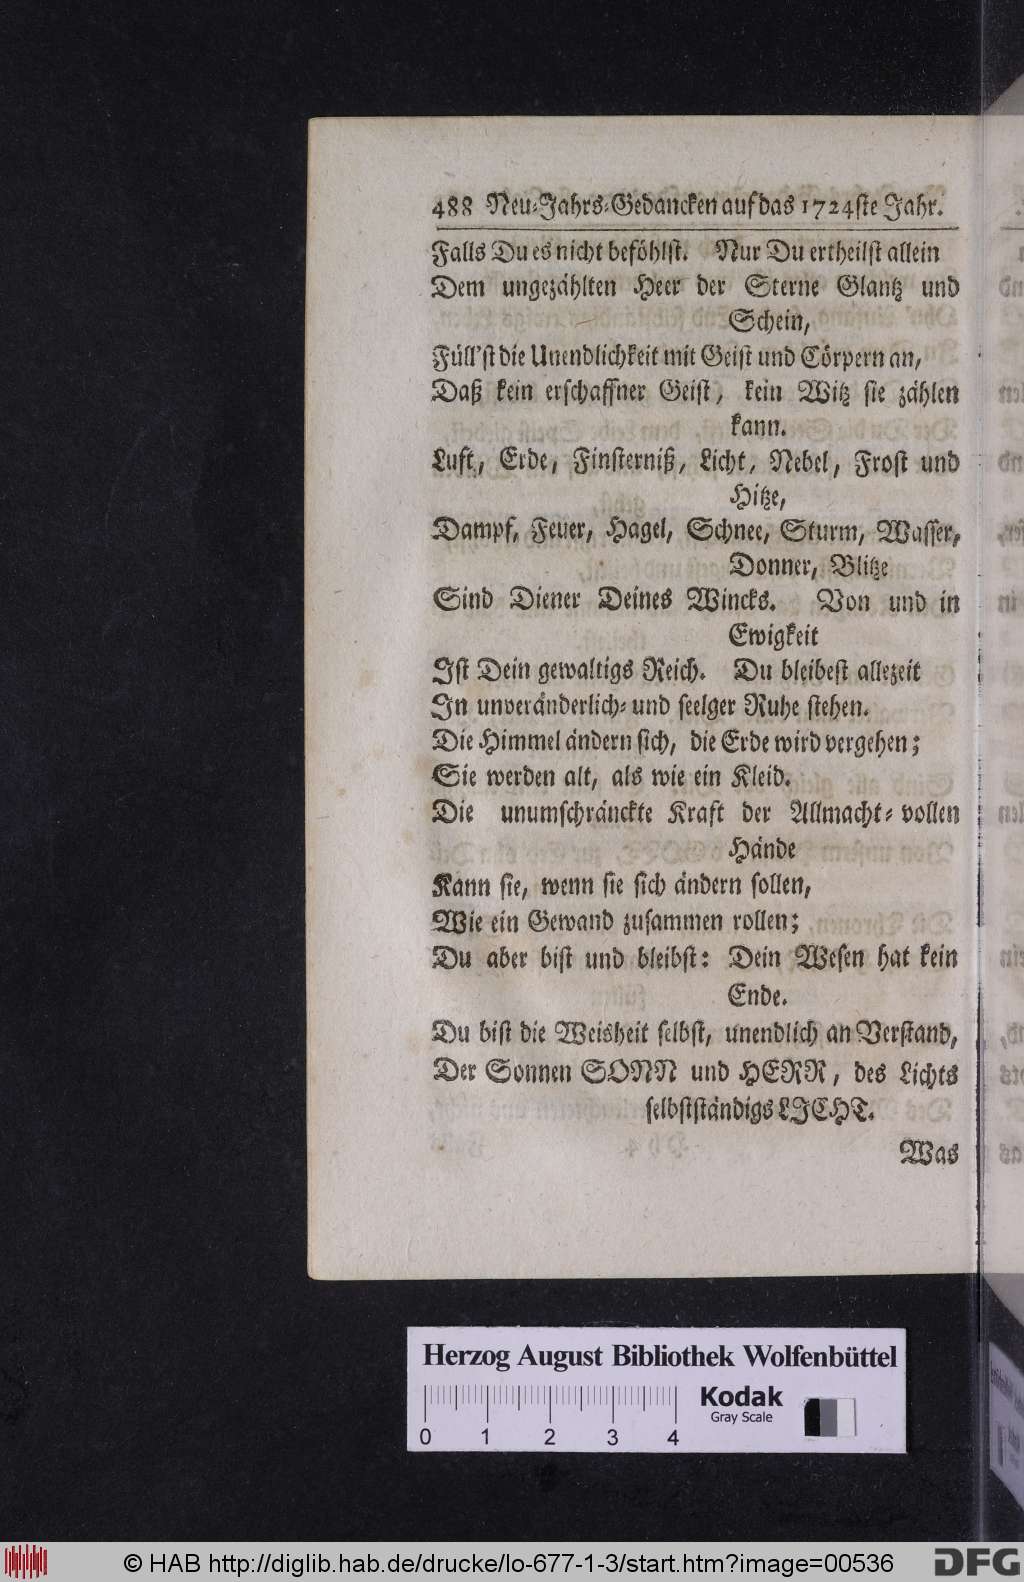 488 Neu-Jahrs-Gedancken auf das 1724ste Jahr.
Falls Du es nicht beföhlst. Nur Du ertheilst allein
Dem ungezählten Heer der Sterne Glantz und
Schein,
Füll'st die Unendlichkeit mit Geist und Cörpern an,
Daß kein erschaffner Geist, kein Witz sie zählen
kann.
Luft, Erde, Finsterniß, Licht, Nebel, Frost und
Hitze,
Dampf, Feuer, Hagel, Schnee, Sturm, Wasser,
Donner, Blitze
Sind Diener Deines Wincks. Von und in
Ewigkeit
Ist Dein gewaltigs Reich. Du bleibest allezeit
In unveränderlich- und seelger Ruhe stehen.
Die Himmel ändern sich, die Erde wird vergehen;
Sie werden alt, als wie ein Kleid.
Die unumschränckte Kraft der Allmacht-vollen
Hände
Kann sie, wenn sie sich ändern sollen,
Wie ein Gewand zusammen rollen;
Du aber bist und bleibst: Dein Wesen hat kein
Ende.
Du bist die Weisheit selbst, unendlich an Verstand,
Der Sonnen SONN und HERR, des Lichts
selbstständigs LICHT.
Was
Herzog August Bibliothek Wolfenbüttel
Kodak
Gray Scale
0 1 2 3 4
© HAB http://diglib.hab.de/drucke/lo-677-1-3/start.htm?image=00536
DFG